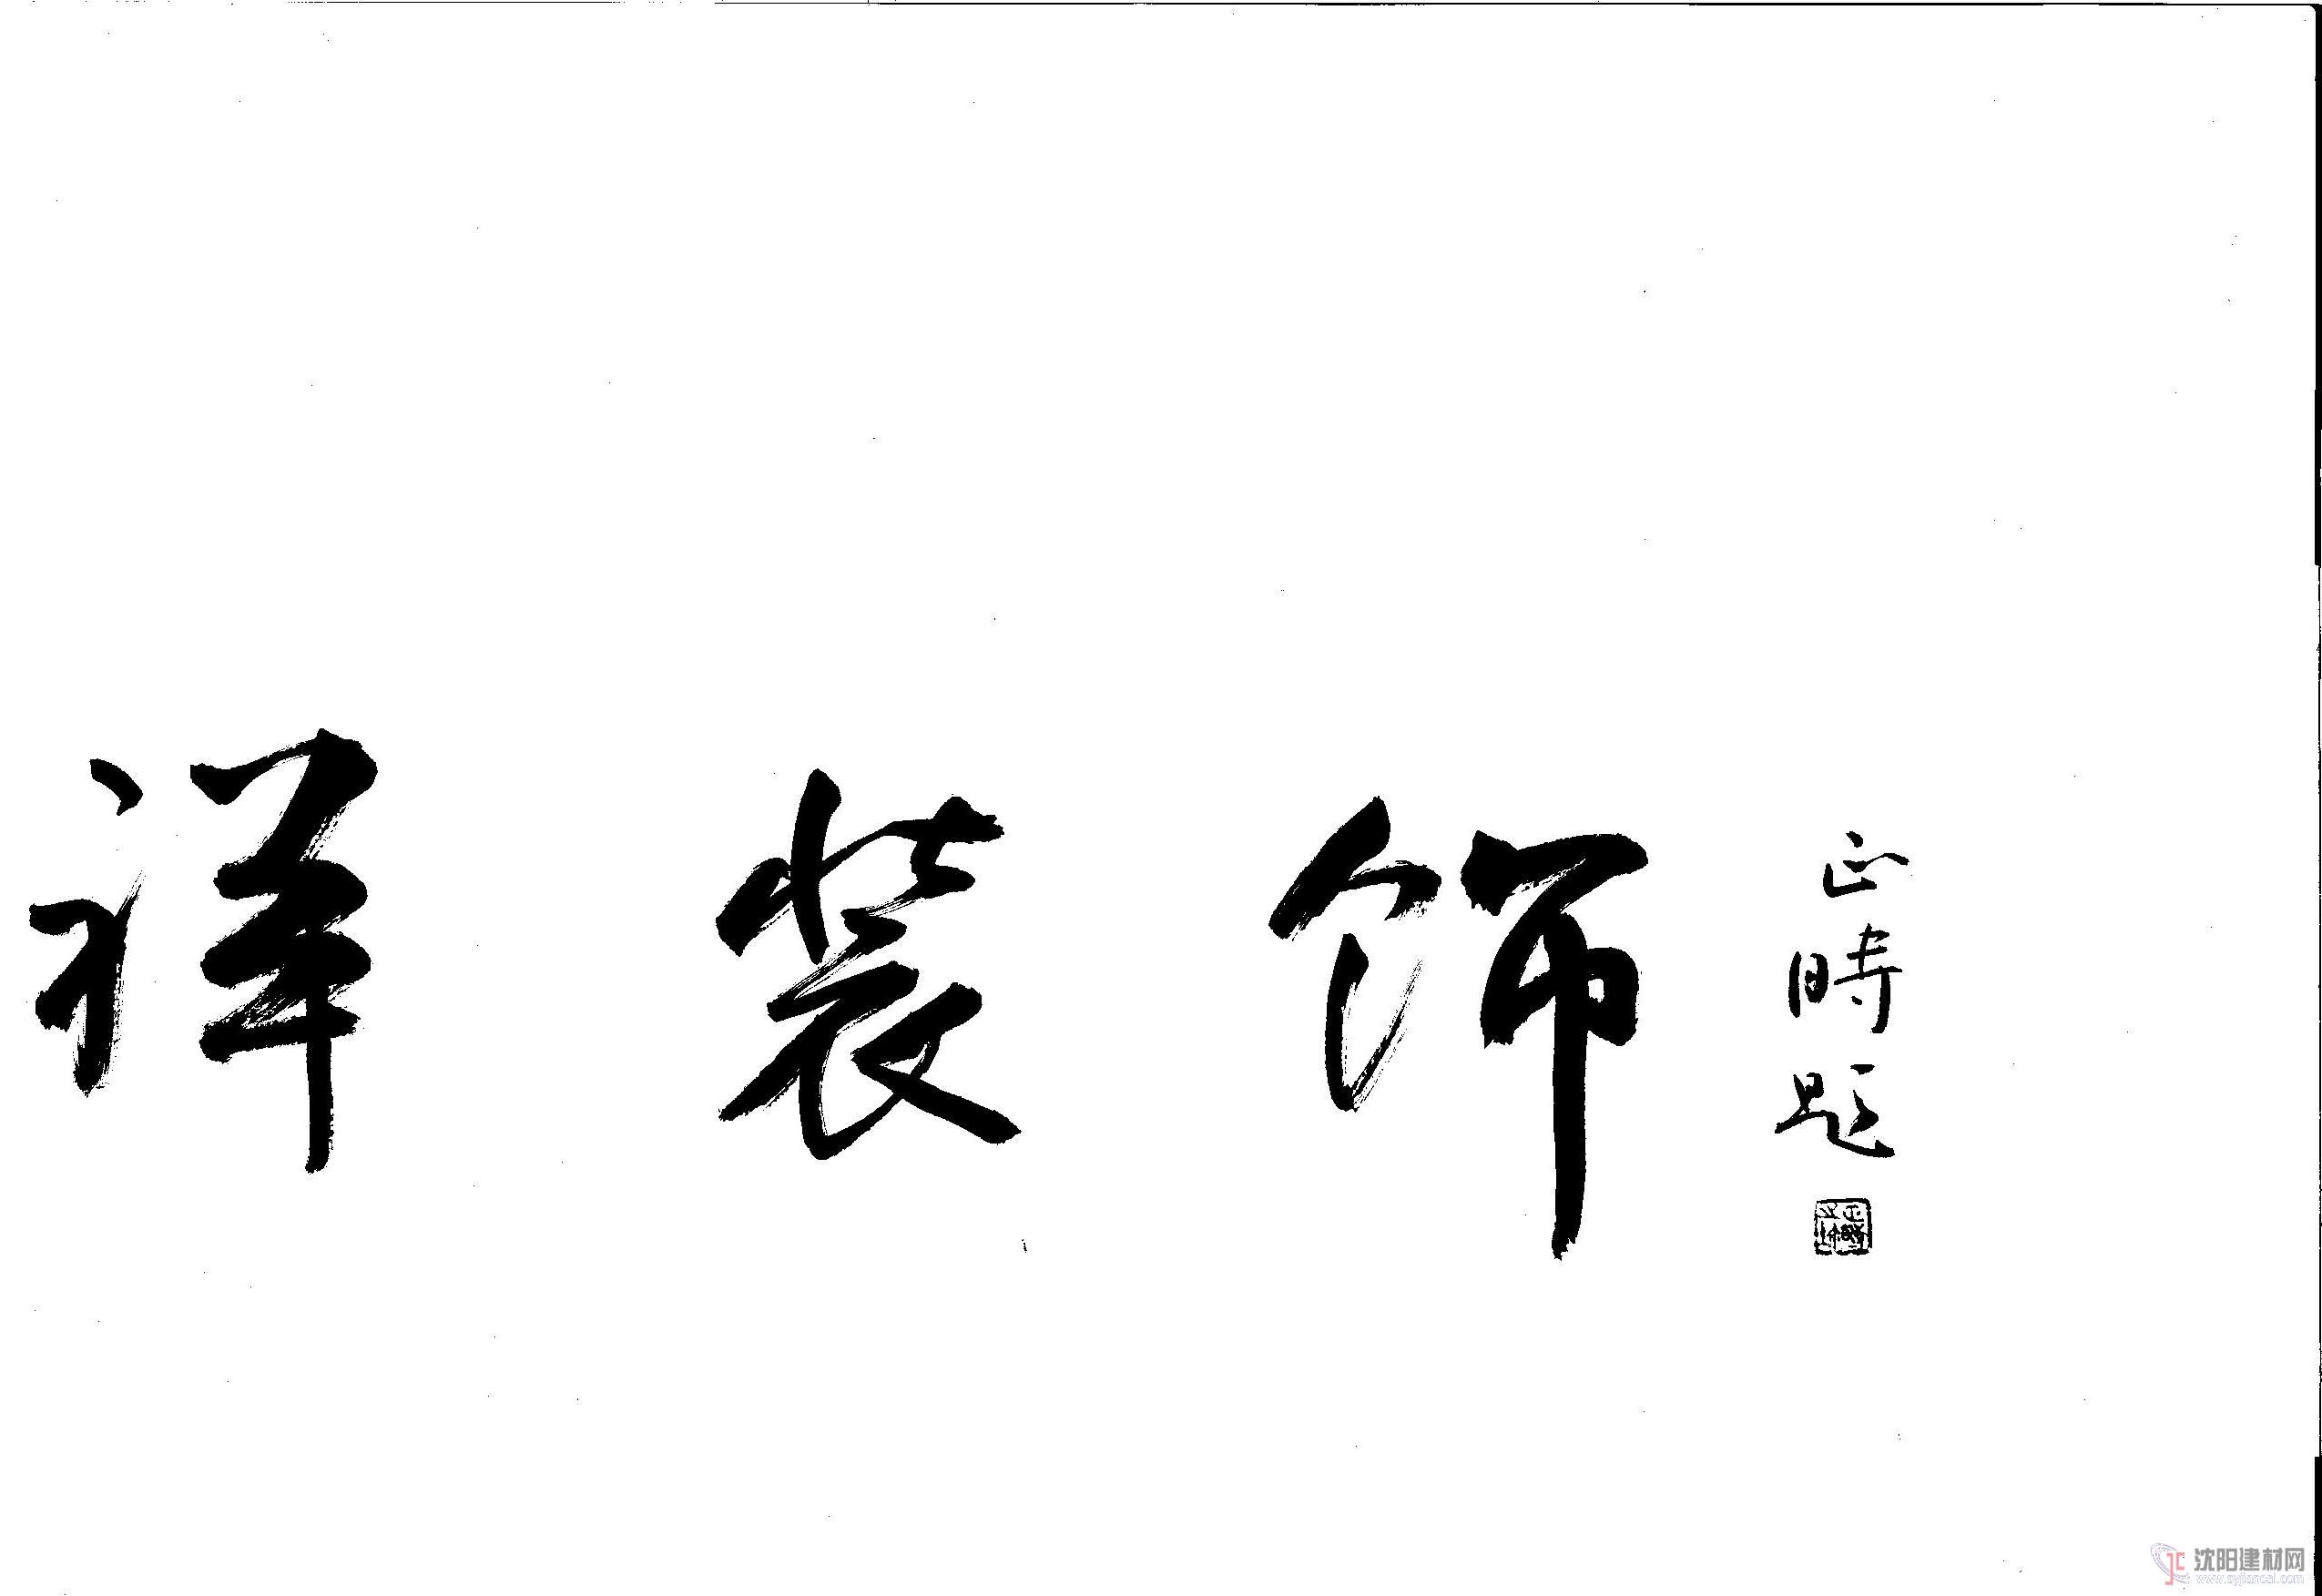 祥装饰
正時题
沈阳建材网
www.syjiancai.com